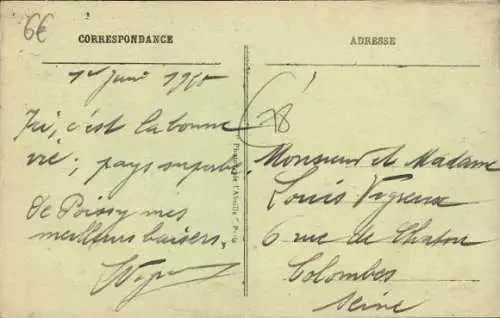 6€
CORRESPONDANCE
ADRESSE
1er Juin
78
Ici, c'est la bonne
vie; pays superbe.
de Poissy mes
meilleurs baisers.
Monsieur et Madame
Louis Vigreux
6 rue de Chatou
Colombes
Seine